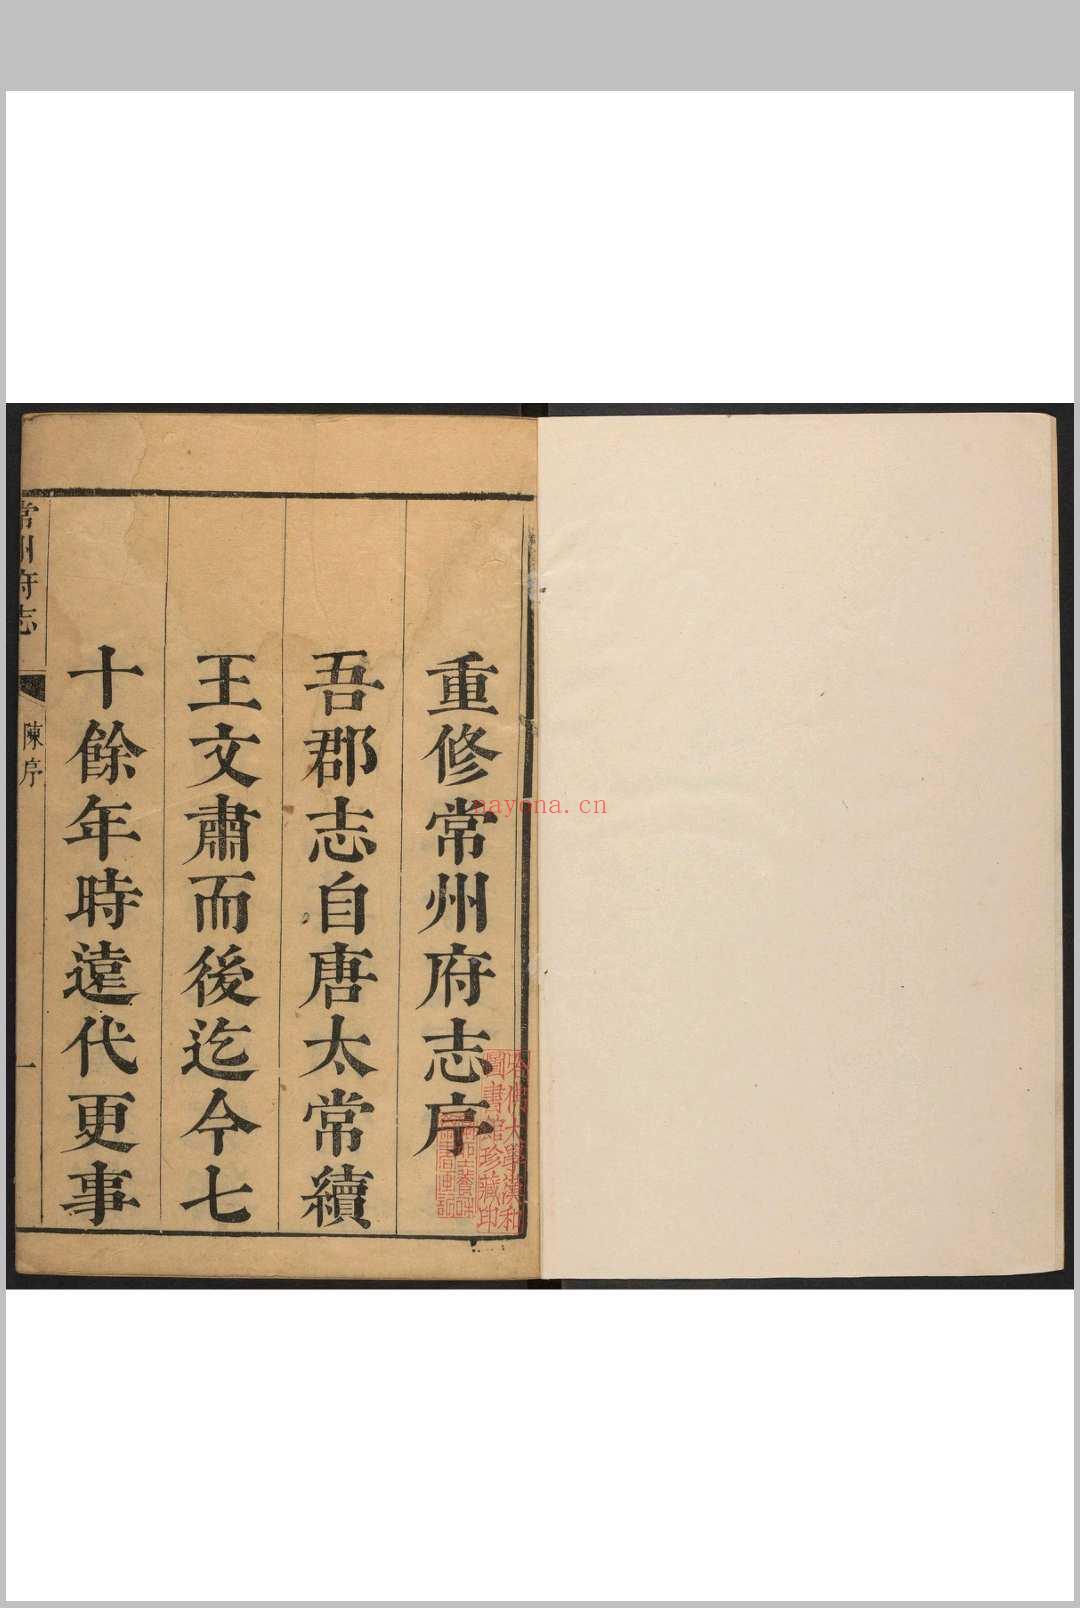 重修常州府志序
吾郡志自唐太常續
王文肅而後迄今七
十餘年時遠代更事
常州府志
陳序
一
哈佛大學漢和
圖書館珍藏印
nayona.cn